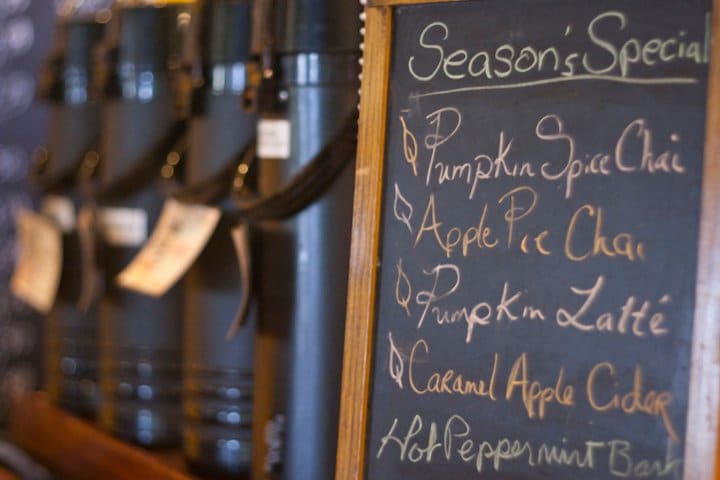 Season's Special
Pumpkin Spice Chai
Apple Pie Chai
Pumpkin Latté
Caramel Apple Cider
Hot Peppermint Bark